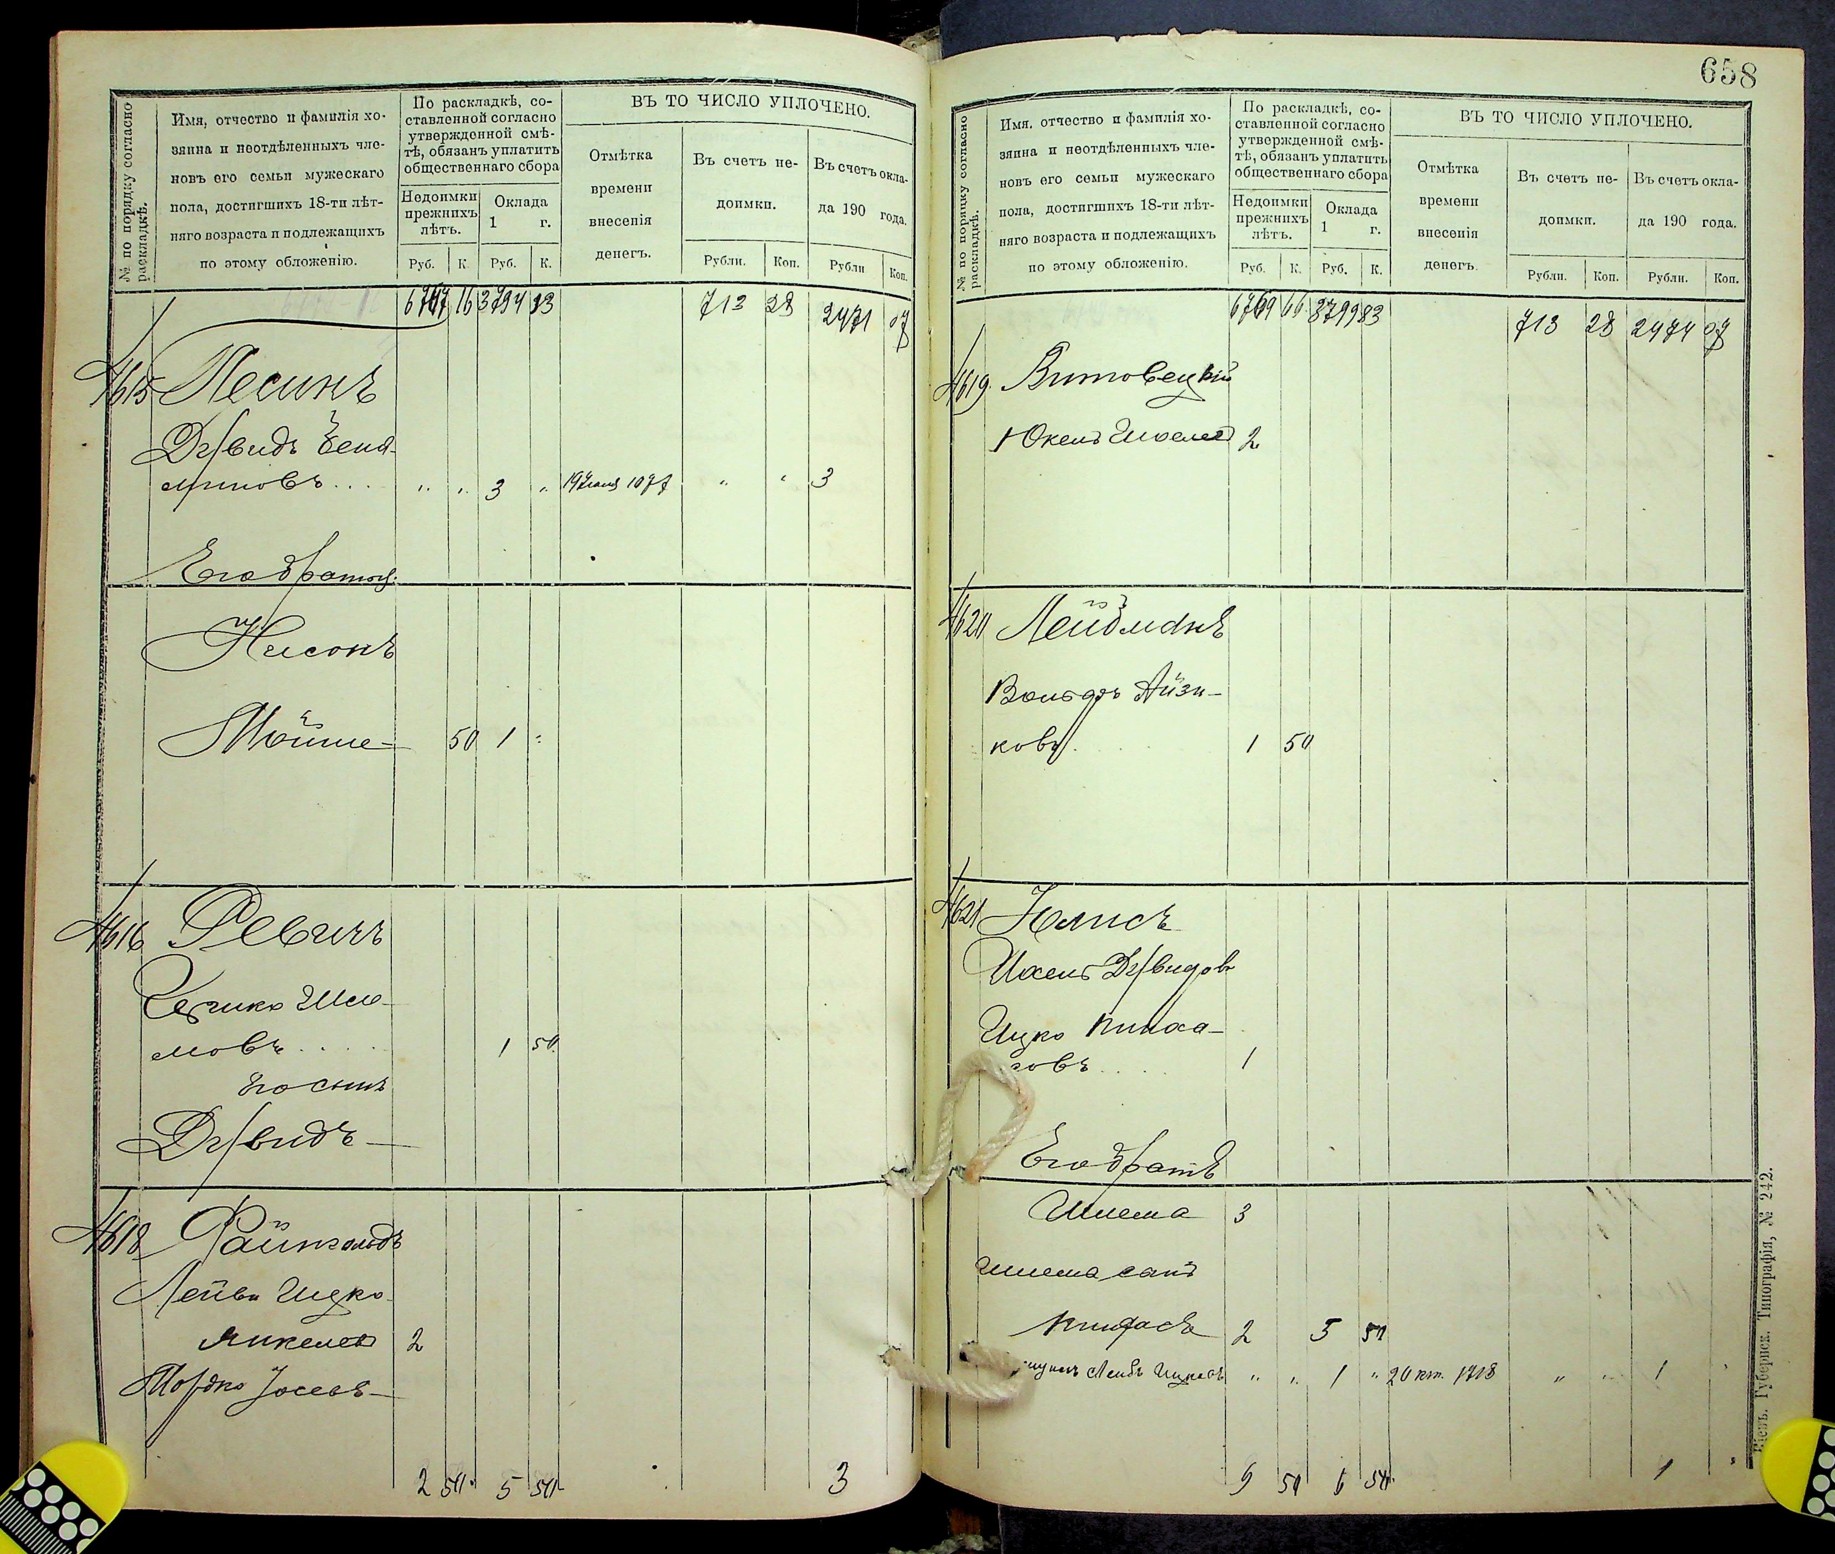 № по порядку согласно раскладкѣ.
Имя, отчество и фамилія хо-
зяина и неотдѣленныхъ чле-
новъ его семьи мужескаго
пола, достигшихъ 18-ти лѣт-
няго возраста и подлежащихъ
по этому обложенію.
По раскладкѣ, со-
ставленной согласно
утвержденной смѣ-
тѣ, обязанъ уплатить
общественнаго сбора
Недоимки
прежнихъ
лѣтъ.
Оклада
1 г.
Руб. К. Руб. К.
ВЪ ТО ЧИСЛО УПЛОЧЕНО.
Отмѣтка
времени
внесенія
денегъ.
Въ счетъ не-
доимки.
Рубли. Коп.
Въ счетъ окла-
да 190 года.
Рубли Коп.
6767 16 3794 33 713 28 2471 07
4615 Лесинъ
Давидъ Беня-
миновъ .... " " 3 " " " 3
Его братья:
Нисонъ
Мойше 50 1 "
4616 Левинъ
Шлио-
мовъ .... 1 50
его сынъ
Давидъ
4618 Файнгольдъ
Лейви Ицко-
Янкелев 2
Мордко Іосевъ
2 50 5 50 3
658
№ по порядку согласно раскладкѣ.
Имя, отчество и фамилія хо-
зяина и неотдѣленныхъ чле-
новъ его семьи мужескаго
пола, достигшихъ 18-ти лѣт-
няго возраста и подлежащихъ
по этому обложенію.
По раскладкѣ, со-
ставленной согласно
утвержденной смѣ-
тѣ, обязанъ уплатить
общественнаго сбора
Недоимки
прежнихъ
лѣтъ.
Оклада
1 г.
Руб. К. Руб. К.
ВЪ ТО ЧИСЛО УПЛОЧЕНО.
Отмѣтка
времени
внесенія
денегъ.
Въ счетъ не-
доимки.
Рубли. Коп.
Въ счетъ окла-
да 190 года.
Рубли. Коп.
6769 66 3799 83 713 28 2474 07
4619 Витовецкій
Юкель 2
4620 Лейбманъ
Вольфъ Айзи-
ковъ 1 50
4621 Юлисъ
Давидов
Ицко Пинха-
совъ .... 1
Его братъ
Шлема 3
Шлема сынъ
Пинхасъ 2 5 50
Лейбъ Ицковъ " " 1 " 20 окт. 1713 " " 1
9 50 6 50 1
Губернск. Типографія, № 242.